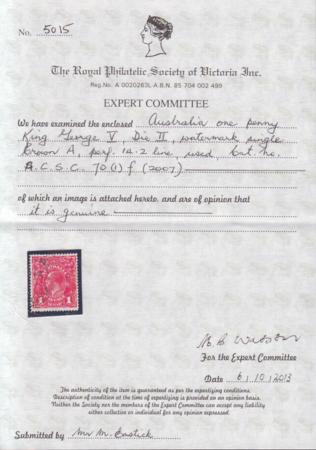 No. 5015
The Royal Philatelic Society of Victoria Inc.
Reg.No. A 0020263L A.B.N. 85 704 002 499
EXPERT COMMITTEE
We have examined the enclosed Australia one penny
King George V, Die II, watermark single
Crown A, perf. 14.2 line, used Cat. No.
A.C.S.C. 70(1) f (2007)
of which an image is attached hereto, and are of opinion that
it is genuine
1 1
For the Expert Committee
Date 6/10/2013
The authenticity of the item is guaranteed as per the expertizing conditions.
Description of condition at the time of expertizing is provided on an opinion basis.
Neither the Society nor the members of the Expert Committee can accept any liability
either collective or individual for any opinion expressed.
Submitted by Mr M.